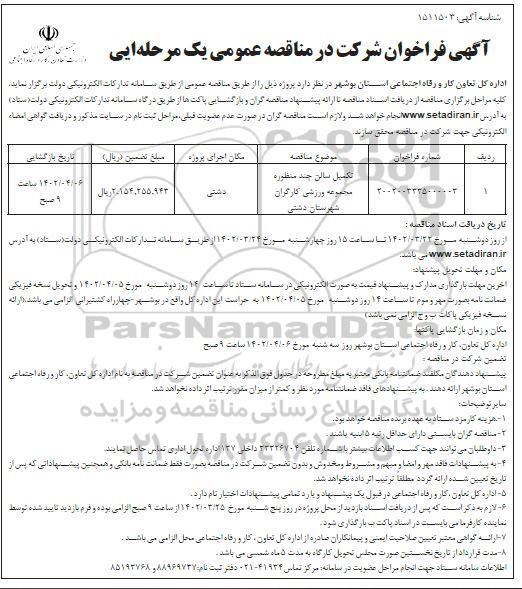 شناسه آگهی: ۱۵۱۱۵۰۳
جمهوری اسلامی ایران
وزارت تعاون، کار و رفاه اجتماعی
آگهی فراخوان شرکت در مناقصه عمومی یک مرحله‌ایی
اداره کل تعاون کار و رفاه اجتماعی استان بوشهر در نظر دارد پروژه ذیل را از طریق مناقصه عمومی از طریق سامانه تدارکات الکترونیکی دولت برگزار نماید.
کلیه مراحل برگزاری مناقصه از دریافت اسناد مناقصه تا ارائه پیشنهاد مناقصه گران و بازگشایی پاکت ها از طریق درگاه سامانه تدارکات الکترونیکی دولت(ستاد)
به آدرس www.setadiran.ir انجام خواهد شد ولازم است مناقصه گران در صورت عدم عضویت قبلی، مراحل ثبت نام در سایت مذکور و دریافت گواهی امضاء
الکترونیکی جهت شرکت در مناقصه محقق سازند.
ردیف شماره فراخوان موضوع مناقصه مکان اجرای پروژه مبلغ تضمین (ریال) تاریخ بازگشایی
۱ ۲۰۰۲۰۰۳۳۳۵۰۰۰۰۰۳ تکمیل سالن چند منظوره مجموعه ورزشی کارگران شهرستان دشتی دشتی ۲،۱۵۴،۲۵۵،۹۴۳ریال ۱۴۰۲/۰۴/۰۶ ساعت ۹ صبح
تاریخ دریافت اسناد مناقصه :
از روز دوشنبه مورخ ۱۴۰۲/۰۳/۲۲ تا ساعت ۱۵ روز چهارشنبه مورخ ۱۴۰۲/۰۳/۲۴ از طریق سامانه تدارکات الکترونیکی دولت(ستاد) به آدرس
www.setadiran.ir می باشد.
مکان و مهلت تحویل پیشنهاد:
آخرین مهلت بارگذاری مدارک و پیشنهاد قیمت به صورت الکترونیکی در سامانه ستاد تا ساعت ۱۴ روز دوشنبه مورخ ۱۴۰۲/۰۴/۰۵ و تحویل نسخه فیزیکی
ضمانت نامه بصورت مهر و موم تا ساعت ۱۴ روز دوشنبه مورخ ۱۴۰۲/۰۴/۰۵ به حراست این اداره کل واقع در بوشهر-چهارراه کشتیرانی الزامی می باشد.(ارائه
نسخه فیزیکی پاکات ب و ج الزامی نمی باشد)
مکان و زمان بازگشایی پاکتها:
اداره کل تعاون، کار و رفاه اجتماعی استان بوشهر روز سه شنبه مورخ ۱۴۰۲/۰۴/۰۶ ساعت ۹ صبح
تضمین شرکت در مناقصه :
پیشنهاد دهندگان مکلفند ضمانتنامه بانکی معتبر به مبلغ مطروحه در جدول فوق الذکر به عنوان تضمین شرکت در مناقصه به نام اداره کل تعاون، کار و رفاه اجتماعی
استان بوشهر ارائه دهند. به پیشنهادهای فاقد ضمانتنامه مورد نظر و کمتر از میزان مقرر ترتیب اثر داده نخواهد شد.
سایر توضیحات:
۱-هزینه کارمزد ستاد به عهده برنده مناقصه خواهد بود.
۲- مناقصه گران بایستی دارای حداقل رتبه ۵ ابنیه باشند.
۳- داوطلبان می توانند جهت کسب اطلاعات بیشتر با شماره تلفن ۳۳۳۲۶۷۰۴ داخلی ۱۳۷ اداره تحول اداری تماس حاصل نمایند.
۴-به پیشنهادات فاقد مهر و امضا و مبهم و مشروط و مخدوش و بدون تضمین شرکت در مناقصه بصورت فقط ضمانت نامه بانکی و همچنین پیشنهاداتی که پس از
تاریخ تعیین شده ارائه گردد مطلقا ترتیب اثر داده نخواهد شد.
۵-اداره کل تعاون، کار و رفاه اجتماعی در قبول یک پیشنهاد و یا رد تمامی پیشنهادات اختیار تام دارد.
۶-لازم به ذکر است که پس از دریافت اسناد بازدید از محل پروژه در روز پنج شنبه مورخ ۱۴۰۲/۰۳/۲۵ از ساعت ۹ صبح الزامی بوده و فرم بازدید تایید شده توسط
نماینده کارفرما می بایست در اسناد پاکت ب بارگذاری شود.
۷-ارائه گواهی معتبر تعیین صلاحیت ایمنی و پیمانکاران صادره از اداره کل تعاون، کار و رفاه اجتماعی محل الزامی می باشد.
۸-مدت قرارداد از تاریخ نخستین صورت مجلس تحویل کارگاه به مدت ۵ ماه شمسی می باشد.
اطلاعات سامانه ستاد جهت انجام مراحل عضویت در سامانه: مرکز تماس ۴۱۹۳۴-۰۲۱ دفتر ثبت نام: ۸۸۹۶۹۷۳۷ و ۸۵۱۹۳۷۶۸
ParsNamadData
پایگاه اطلاع رسانی مناقصه و مزایده